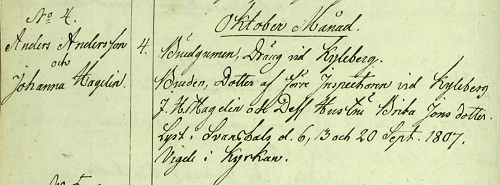 Oktober Månad.
No 4.
Anders Andersson
och
Johanna Hagelin.
4.
Brudgumen, Dräng vid Kyleberg.
Bruden, Dotter af förre Inspectoren vid Kyleberg
J. H. Hagelin och Dess Hustru Brita Jons dotter.
Lyst i Svanshals d. 6, 13 och 20 Sept. 1807.
Vigde i Kyrkan.